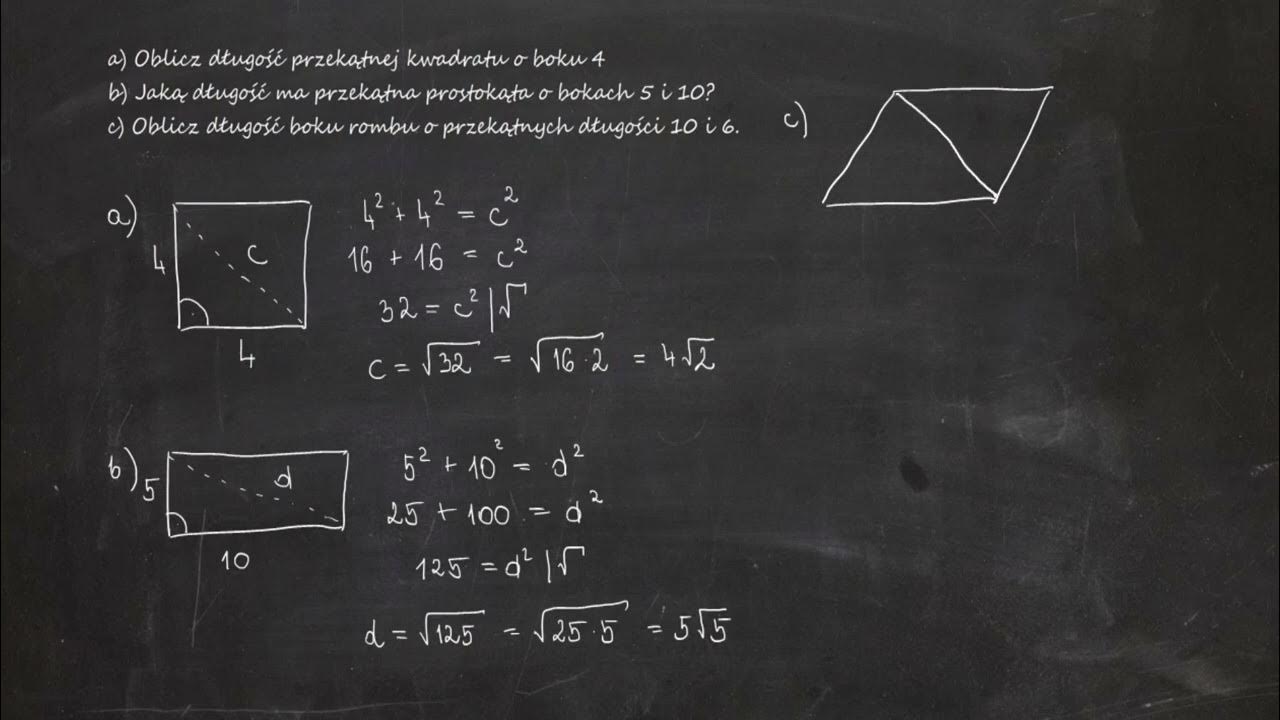 a) Oblicz długość przekątnej kwadratu o boku 4
b) Jaką długość ma przekątna prostokąta o bokach 5 i 10?
c) Oblicz długość boku rombu o przekątnych długości 10 i 6.
c)
a)
4
c
4
4² + 4² = c²
16 + 16 = c²
32 = c² |√
c = √32 = √16·2 = 4√2
b)
5
d
10
5² + 10² = d²
25 + 100 = d²
125 = d² |√
d = √125 = √25·5 = 5√5